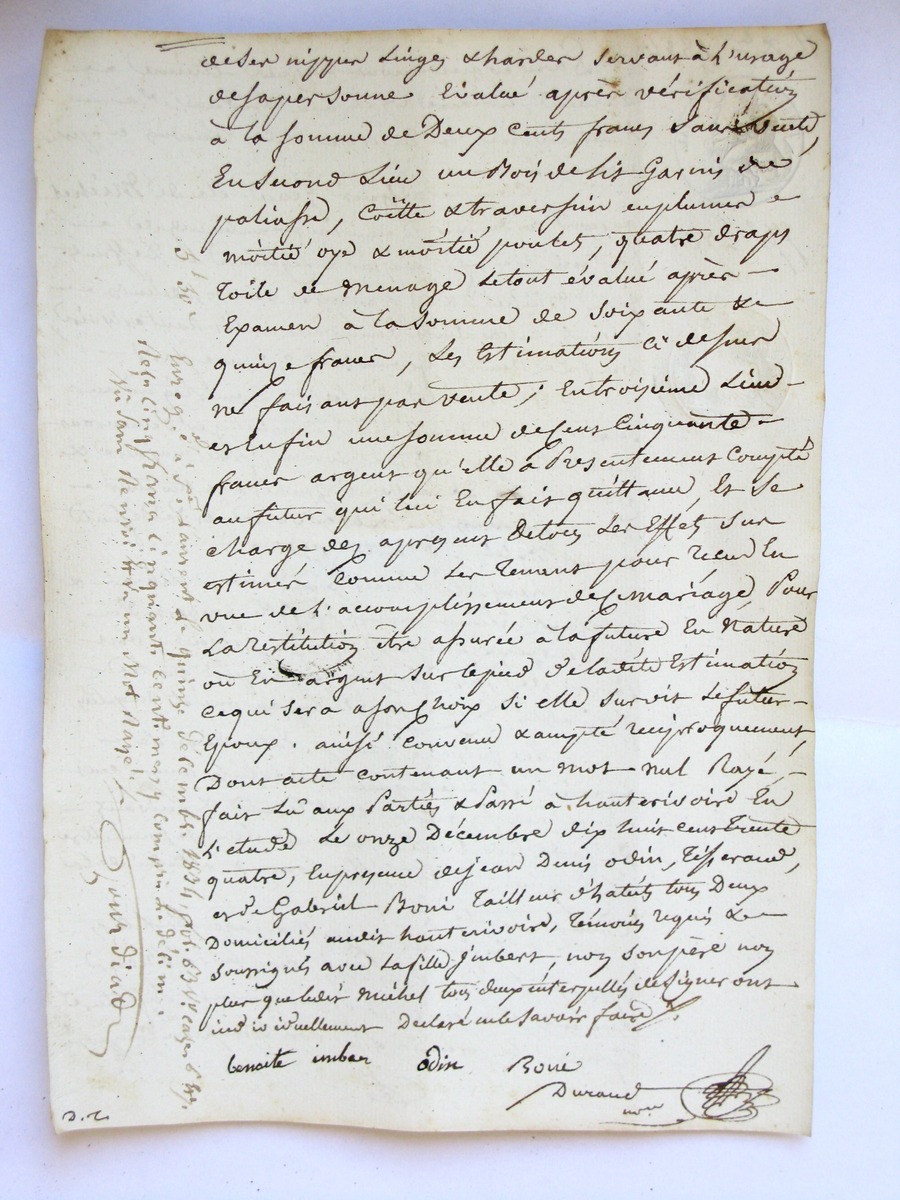 de ses nippes Linges & hardes servant à l'usage
de sa personne Evalué après vérification
à la somme de Deux cents francs Sans vente,
En second Lieu un Bois de Lit Garni de
paliasse, Coëtte & traversin en plumes
moitié oye & moitié poulet, quatre draps
Toile de Menage Le tout évalué après
Examen à la Somme de Soixante &
quinze francs, Les Estimations Ci dessus
ne faisant pas vente; En troisieme Lieu
et Enfin une somme de Cent Cinquante
francs argent qu'elle à Présentement Compté
au futur qui lui En fait quittance, Et se
charge dez àprésent De tous Les Effets sus
estimés Comme Les Tenant pour reçu En
vue de L'accomplissement du mariage, Pour
La restitution être assurée à la future En Nature
où En argent Sur le pied de ladite Estimation
ce qui sera a son choix si elle survit Le futur
Epoux. ainsi convenu & accepté reciproquement,
Dont acte contenant un mot nul Rayé,
fait Lû aux Parties & Passé à hauterivoire En
L'étude Le onze Décembre dix huit cent Trente
quatre, En présence de jean Denis odin, Tisserand,
et de Gabriel Boni Tailleur d'habits tous Deux
Domiciliés audit hauterivoire, Témoins requis &
Soussignés avec La fille jmbert, non son père non
plus que ledit Michel tous deux interpellés de Signer ont
individuellement Déclaré ne le Savoir faire
benoite imber odin Boni
Durand
nore
D. r.
5f 50
Enregé à St Laurent le quinze décembre 1834, fol. 63 Vo case 6
Reçu cinq francs cinquante centimes y compris le décime.
un mot Rayé